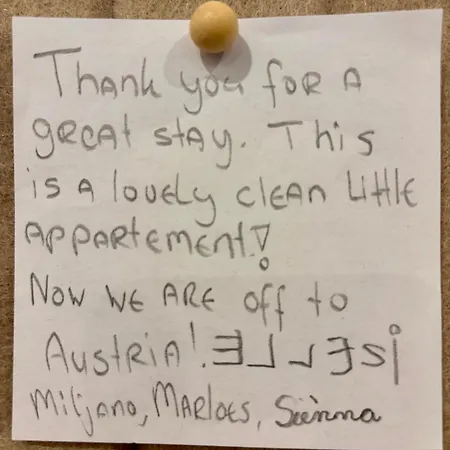 Thank you for a
great stay. This
is a lovely clean little
appartement!
Now we are off to
Austria!
Miljano, Marloes, Siënna